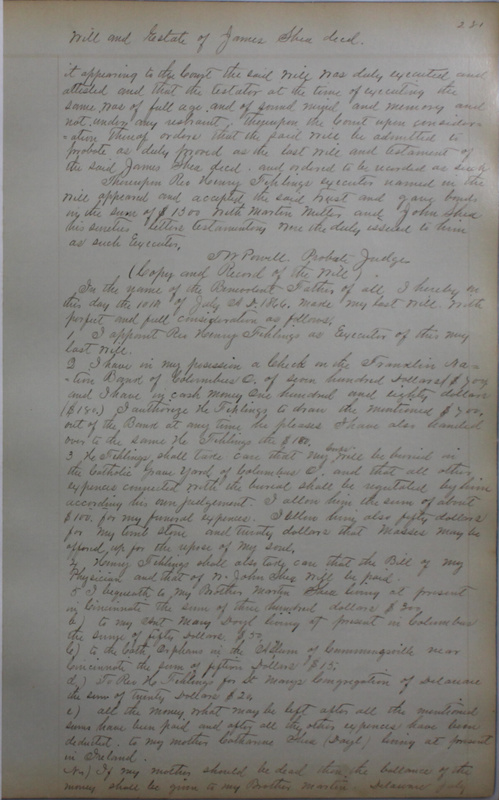 221
Will and Estate of James Shea decd.
it appearing to the Court the said Will was duly executed and
attested and that the testator at the time of executing the
same was of full age and of sound mind and memory and
not under any restraint, thereupon the Court upon consider-
-ation thereof orders that the said Will be admitted to
probate as duly proved as the last will and testament of
the said James Shea decd. and ordered to be recorded as such
Thereupon Rev Henry Fehlings executor named in the
Will appeared and accepted the said trust and gave bonds
in the sum of $1500 with Martin Miller and John Shea
his sureties letters testamentary were the duly issued to him
as such Executor.
T W Powell. Probate Judge
(Copy and Record of the Will)
In the name of the Benevolent Father of all, I hereby on
this day the 10th of July A.D. 1866. made my last Will with
perfect and full consideration as follows:
1. I appoint Rev Henry Fehlings as Executor of this my
last Will.
2 I have in my possession a Check on the Franklin Na-
-tion Band of Columbus O. of seven hundred Dollars ($700
and I have in cash money One hundred and eighty dollars
($180.) I authorize He Fehlings to draw the mentioned $700,
out of the Band at any time he pleases I have also handed
over to the same He Fehlings the $180.
3 He Fehlings shall take care that my will be buried in
the Catholic grave yard of Columbus O. and that all other
expences connected with the burial shall be regulated by him
according his own judgement. I allow him the sum of about
$100. for my funeral expences. I allow him also fifty dollars
for my tomb stone and twenty dollars that Masses may be
offered up for the repose of my soul.
4 Henry Fehlings shall also take care that the Bill of my
Physician and that of Mr John Shea will be paid.
5 I bequeath to my Brother Martin Shea living at present
in Cincinnate the sum of three hundred dollars $300
b) to my Aunt Mary Doyl living at present in Columbus
the sume of fifty Dollars. $50
c) to the Cath. Orphans in the Asylum of Cummingsville near
Cincinnate the sum of fifteen Dollars $15.
d.) To Rev He Fehlings for St Marys Congregation of Delaware
the sum of twenty Dollars $20
e) all the money what may be left after all the mentioned
sums have been paid and after all the other expences have been
deducted. to my mother Catharine Shea (Doyl) living at present
in Ireland.
Na) If my mother should be dead then the ballance of the
money shall be given to my Brother Martin. Delaware July